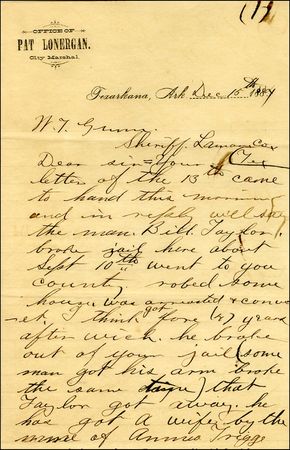 (1)
OFFICE OF
PAT LONERGAN,
City Marshal.
Texarkana, Ark Dec 15th 1884
W. T. Gunn
Sheriff Lamar Co
Tex
Dear sir = your
letter of the 13th came
to hand this morning
and in reply will say
the man Bill Taylor
broke jail here about
Sept 10th went to you
county robed some
house was arrested & convc
ted I think got fore (4) years
after wich he broke
out of your jail (some
man got his arm broke
the same time) that
Taylor got away. he
has got a wife by the
name of Annie Griggs